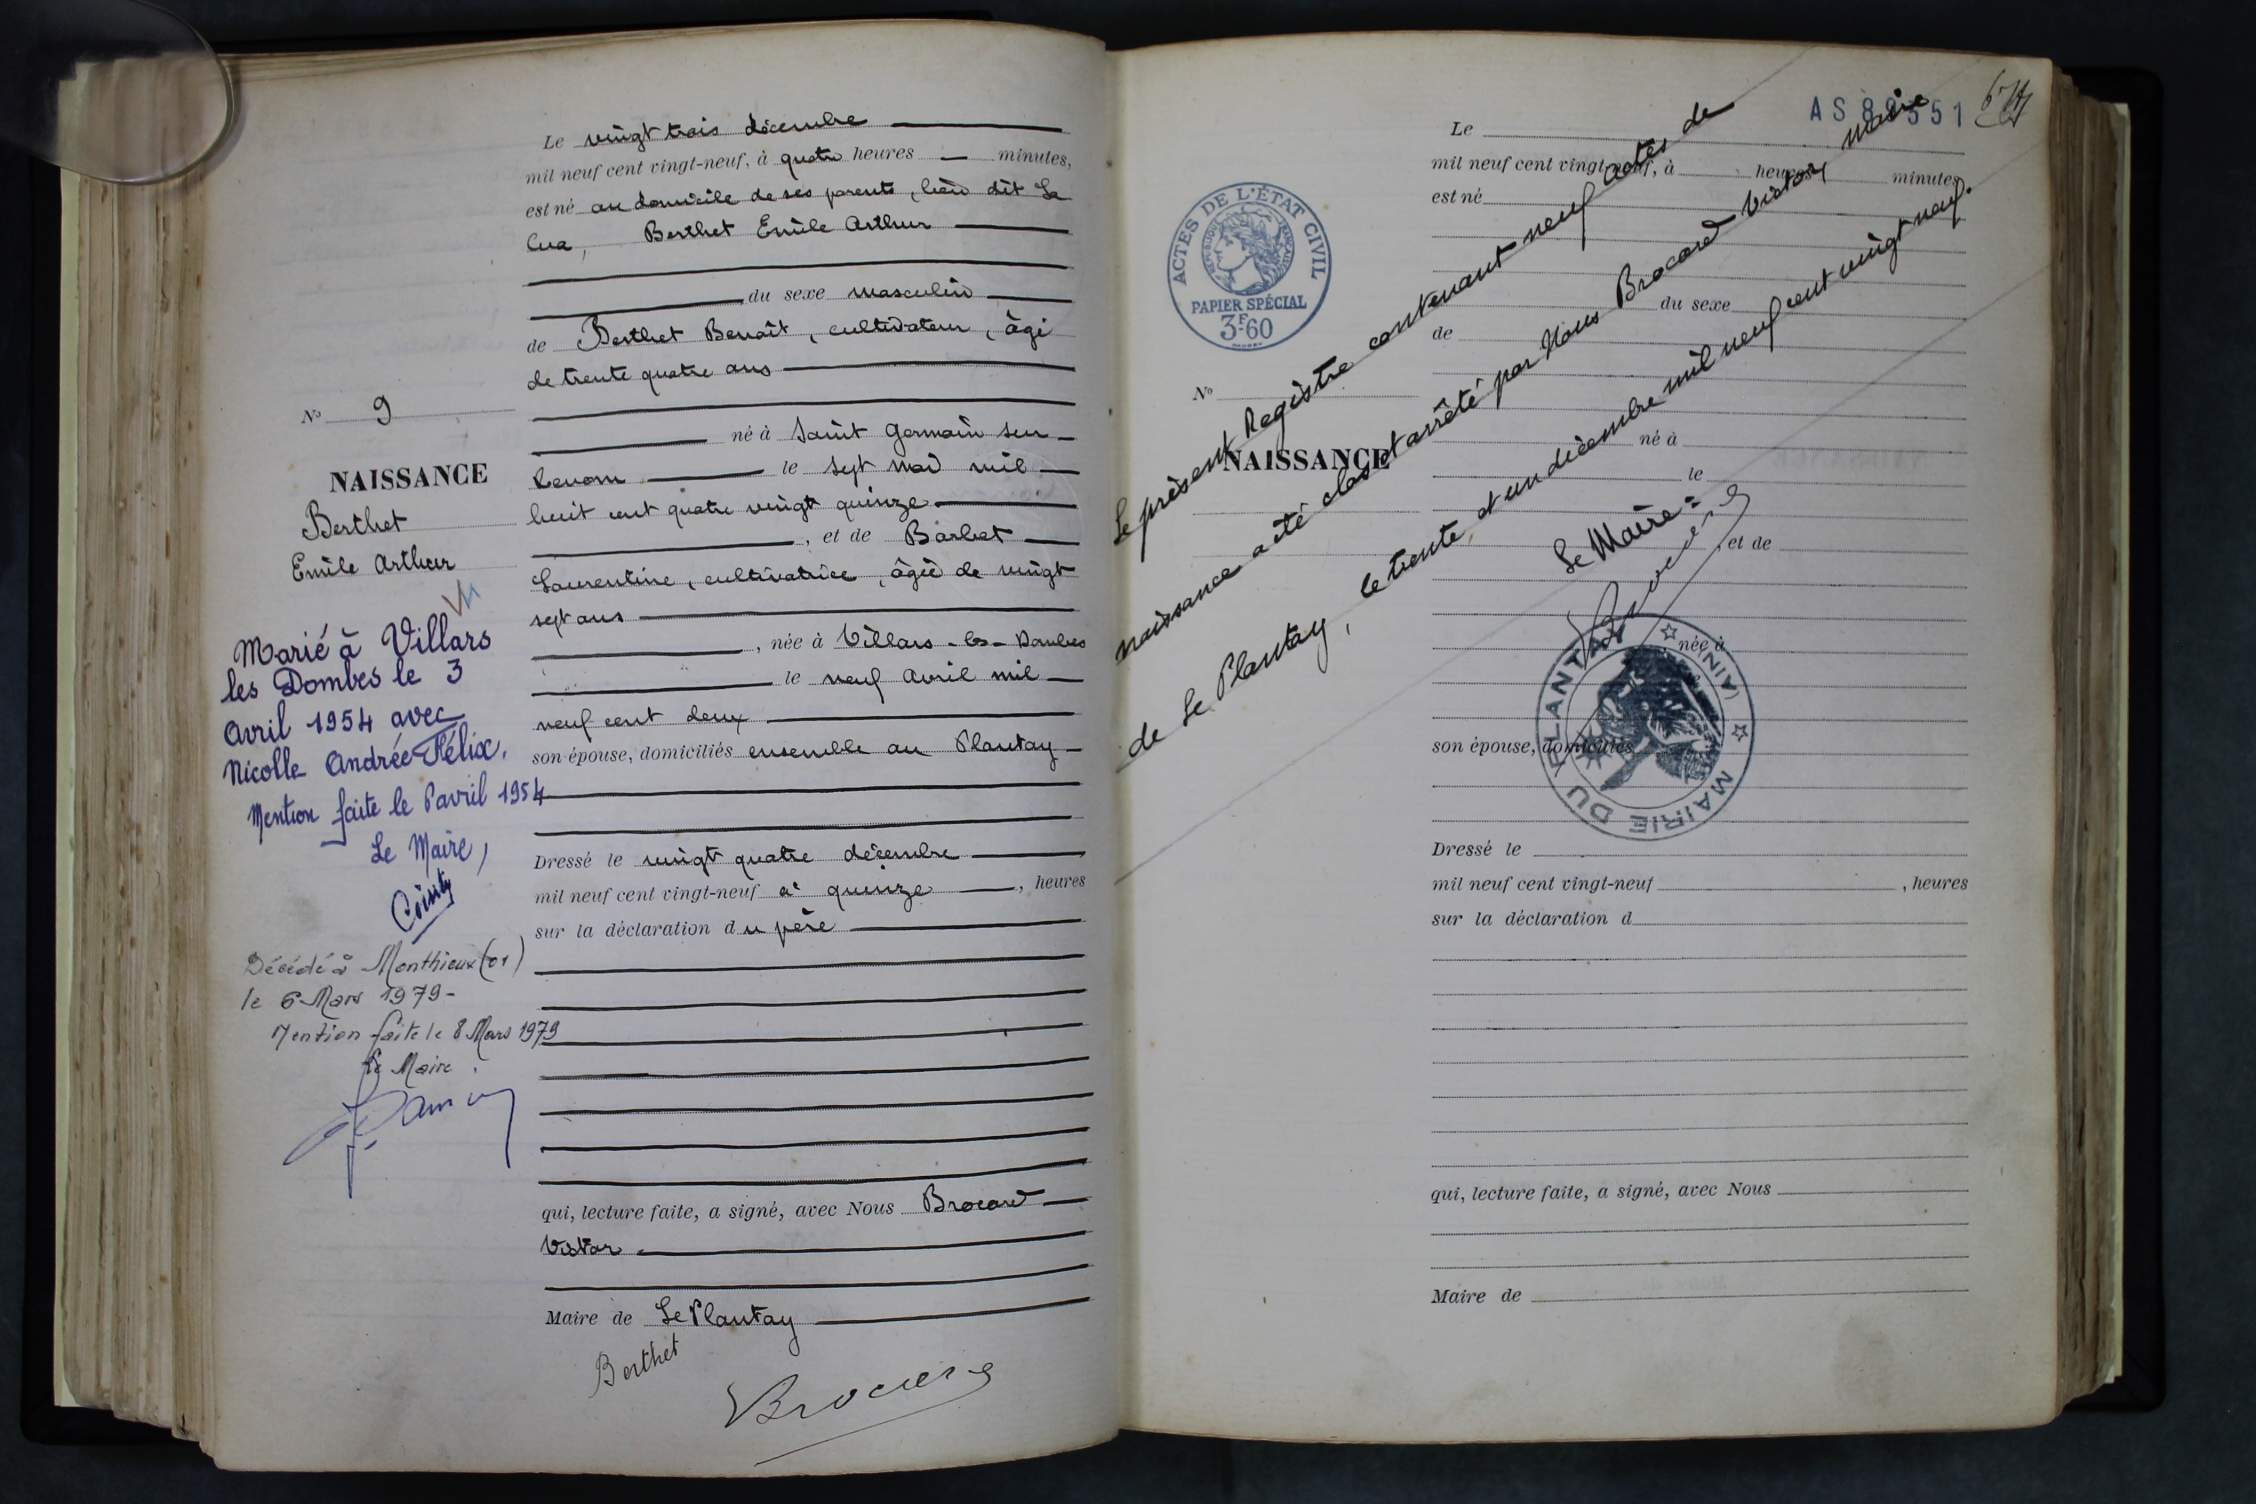 Le vingt trois décembre
mil neuf cent vingt-neuf, à quatre heures — minutes,
est né au domicile de ses parents, lieu dit La
Berthet Emile Arthur
du sexe masculin
de Berthet Benoît, cultivateur, âgé
de trente quatre ans
né à Saint Germain sur
Renom le sept mai mil
huit cent quatre vingt quinze
, et de Barbet
Laurentine, cultivatrice, âgée de vingt
sept ans
, née à Villars-les-Dombes
le neuf avril mil
neuf cent deux
son épouse, domiciliés ensemble au Plantay
Dressé le vingt quatre décembre
mil neuf cent vingt-neuf à quinze, heures
sur la déclaration du père
qui, lecture faite, a signé, avec Nous Brocard
Victor
Maire de Le Plantay
Berthet
Brocard
No 9
NAISSANCE
Berthet
Emile Arthur
Marié à Villars
les Dombes le 3
Avril 1954 avec
Nicolle Andrée Félix.
Mention faite le avril 1954
Le Maire,
Décédé à Monthieux (01)
le 6 Mars 1979-
Mention faite le 8 Mars 1979
Le Maire
AS 551
ACTES DE L'ÉTAT CIVIL
RÉPUBLIQUE FRANÇAISE
PAPIER SPÉCIAL
3F.60
No
NAISSANCE
Le présent Registre contenant neuf actes de
naissance a été clos et arrêté par Nous Brocard Victor, maire
de Le Plantay, le trente et un décembre mil neuf cent vingt neuf.
Le Maire:
Brocard
MAIRIE DU PLANTAY (AIN)
Le
mil neuf cent vingt-neuf, à heures minutes,
est né
du sexe
de
né à
le
, et de
née à
son épouse, domiciliés
Dressé le
mil neuf cent vingt-neuf , heures
sur la déclaration d
qui, lecture faite, a signé, avec Nous
Maire de